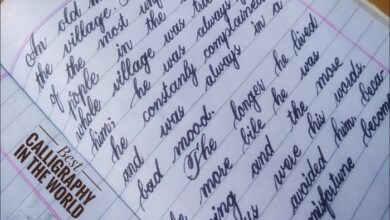 An old m
the village.
of the most unf
people in the
whole village was
him; he was always
he constanly complained
and was always in a
bad mood.
The longer he lived
the more bile he was
and were his words.
avoided him, becau
misfortune becam
Best
CALLIGRAPHY
IN THE WORLD